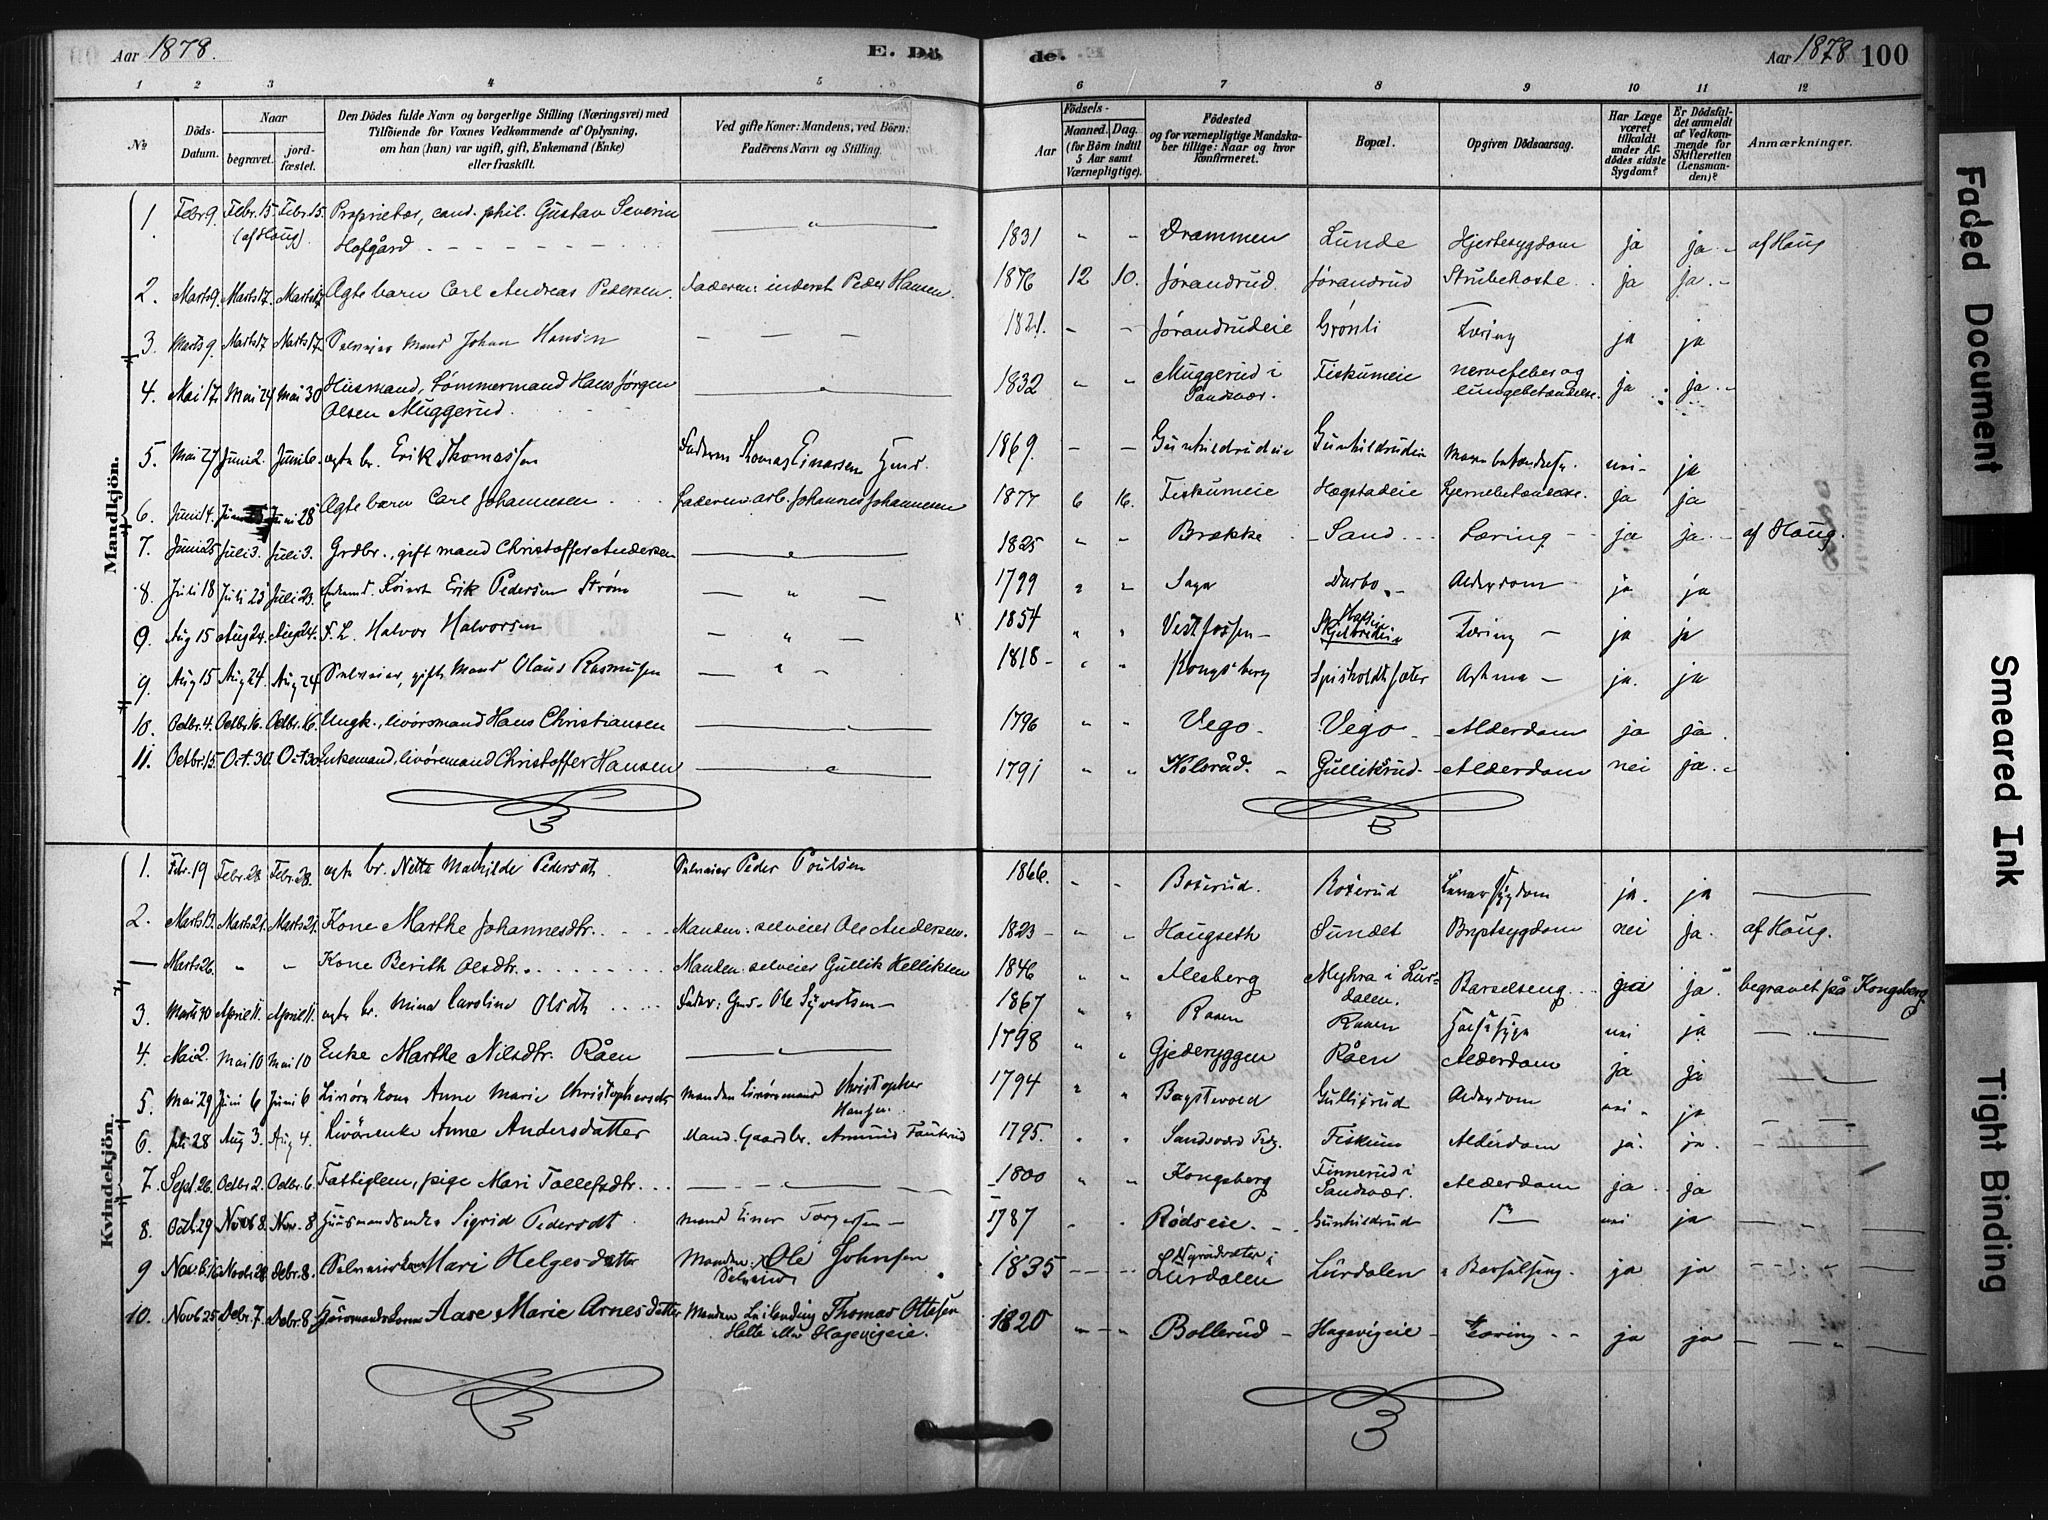 Aar 1878. E. Dö
de. Aar 1878 100
1 2 3 4 5 6 7 8 9 10 11 12
№ Döds-Datum. Naar begravet. jordfæstet. Den Dödes fulde Navn og borgerlige Stilling (Næringsvei) med Tilföiende for Voxnes Vedkommende af Oplysning, om han (hun) var ugift, gift, Enkemand (Enke) eller fraskilt. Ved gifte Koner: Mandens, ved Börn: Faderens Navn og Stilling. Aar Födsels- Maaned. Dag. (for Börn indtil 5 Aar samt Værnepligtige). Födested og for værnepligtige Mandskaber tillige: Naar og hvor konfirmeret. Bopæl. Opgiven Dödsaarsag. Har Læge været tilkaldt under Afdödes sidste Sygdom? Er Dödsfaldet anmeldt af Vedkommende for Skifteretten (Lensmanden)? Anmærkninger.
Mandkjön.
1. Febr 9. Febr. 15. Febr. 15. Proprietær, cand. phil. Gustav Severin 1831 " " Drammen Lunde Hjertesygdom ja ja af Haug
(af Haug). Hofgård
2. Marts 9. Marts 17. Marts 17. Ægte barn Carl Andreas Pedersen. Faderen: inderst Peder Hansen. 1876 12 10. Jørandrud. Jørandrud Strubehoste ja ja
3. Marts 9. Marts 17 Marts 17. Selveier Mand Johan Hansen — — — 1821. — — Jørandrudeie Grönli Tæring ja ja
4. Mai 17. Mai 24 Mai 30 Husmand, Tømmermand Hans Jørgen 1832 " " Muggerud i Fiskumeie nervefeber og ja ja
Olsen Muggerud. Sandsvær. lungebetændelse.
5. Mai 27 Juni 2. Juni 6. ægte br. Erik Thomassen Faderen Thomas Einarsen 1869. — — Gunhildrudeie Gunhildrudeie nei ja
6. Juni 14. Juni 28 Ægte barn Carl Johannesen Faderen: arb. Johannes Johannesen 1877 6 16. Fiskumeie Hægstadeie Hjernebetændelse. ja ja
7. Juni 25 Juli 3. Juli 3. Grdbr., gift mand Christoffer Andersen 1825 " " Brække Sand Tæring ja ja af Haug.
8. Juli 18 Juli 23 Juli 23. Erik Pedersen Strøm — " — 1799 " " Saga Darbo Alderdom ja ja
9. Aug 15 Aug 24. Aug 24. Halvor Halvorsen — " — 1854 " " Vestfossen Tæring — ja ja
9. Aug 15 Aug 24. Aug 24 Selveier, gift Mand Olaus Rasmussen — " — 1818 " " Kongsberg Asthma — ja. ja
10. Octbr. 4. Octbr. 16. Octbr. 16. Ungk., livörsmand Hans Christiansen 1796 " " Vego Vego Alderdom ja ja
11. Octbr. 15. Oct. 30. Oct 30 Enkemand, livøremand Christoffer Hansen 1791 " " Kolsrud. Gulliksrud Alderdom nei ja
Kvindekjön.
1. Febr. 19 Febr. 28 Febr. 28. ægte br. Nette Mathilde Pedersdt. Selveier Peder Poulsen 1866. " " Boserud. Boserud ja. ja
2. Marts 13. Marts 21. Marts 21. Kone Marthe Johannesdtr. Manden: selveier Ole Andersen. 1823 " " Haugseth Sundet Brystsygdom nei ja. af Haug.
— Marts 26. " " Kone Berith Olsdtr. Manden: selveier Gullik Kelliksen 1846 " " Alesberg Myhra i Lurdalen. Barselseng ja begravet på Kongsberg
3. Marts 30 April 11. April 11. ægte br. Mina Caroline Olsdt. Fader: Gmd. Ole Syvertsen — 1867 " " Raaen Raaen nei ja
4. Mai 2. Mai 10 Mai 10 Enke Marthe Nilsdtr. Råen 1798 " " Gjederyggen Råen Alderdom ja ja
5. Mai 29 Juni 6 Juni 6 Anne Marie Christophersdt. Manden Livøremand Christopher Hansen. 1794 " " Bagstevold Gulliksrud Alderdom nei ja
6. Juli 28 Aug 3. Aug 4. Livörenke Anne Andersdatter Mand. Gaardbr. Amund 1795. " " Fiskum Alderdom ja. ja
7. Sept. 26. Octbr 2. Octbr. 6. Fattiglem, pige Mari Tollefsdtr. 1800 " " Kongsberg Finnerud i Sandsvær. Alderdom ja ja
8. Octb. 29 Novb 8. Nov. 8 Husmandsenke Sigrid Pedersdt. Mand Einar Torgersen — 1787 " " Rødseie. Gunhildrud nei ja
9 Novb. 16 Novbr. 28 Debr. 8. Mari Helgesdatter Manden Ole Johnsen 1835 — — Lurdalen Lurdalen Barselseng. ja ja
10. Novb 25 Debr. 7. Debr. 8 Aase Marie Arnesdatter Manden Thomas Ottesen 1820 " — " Bollerud — Hagevigeie — Tæring ja ja
Helte eller Hagevigeie.
Faded Document
Smeared Ink
Tight Binding